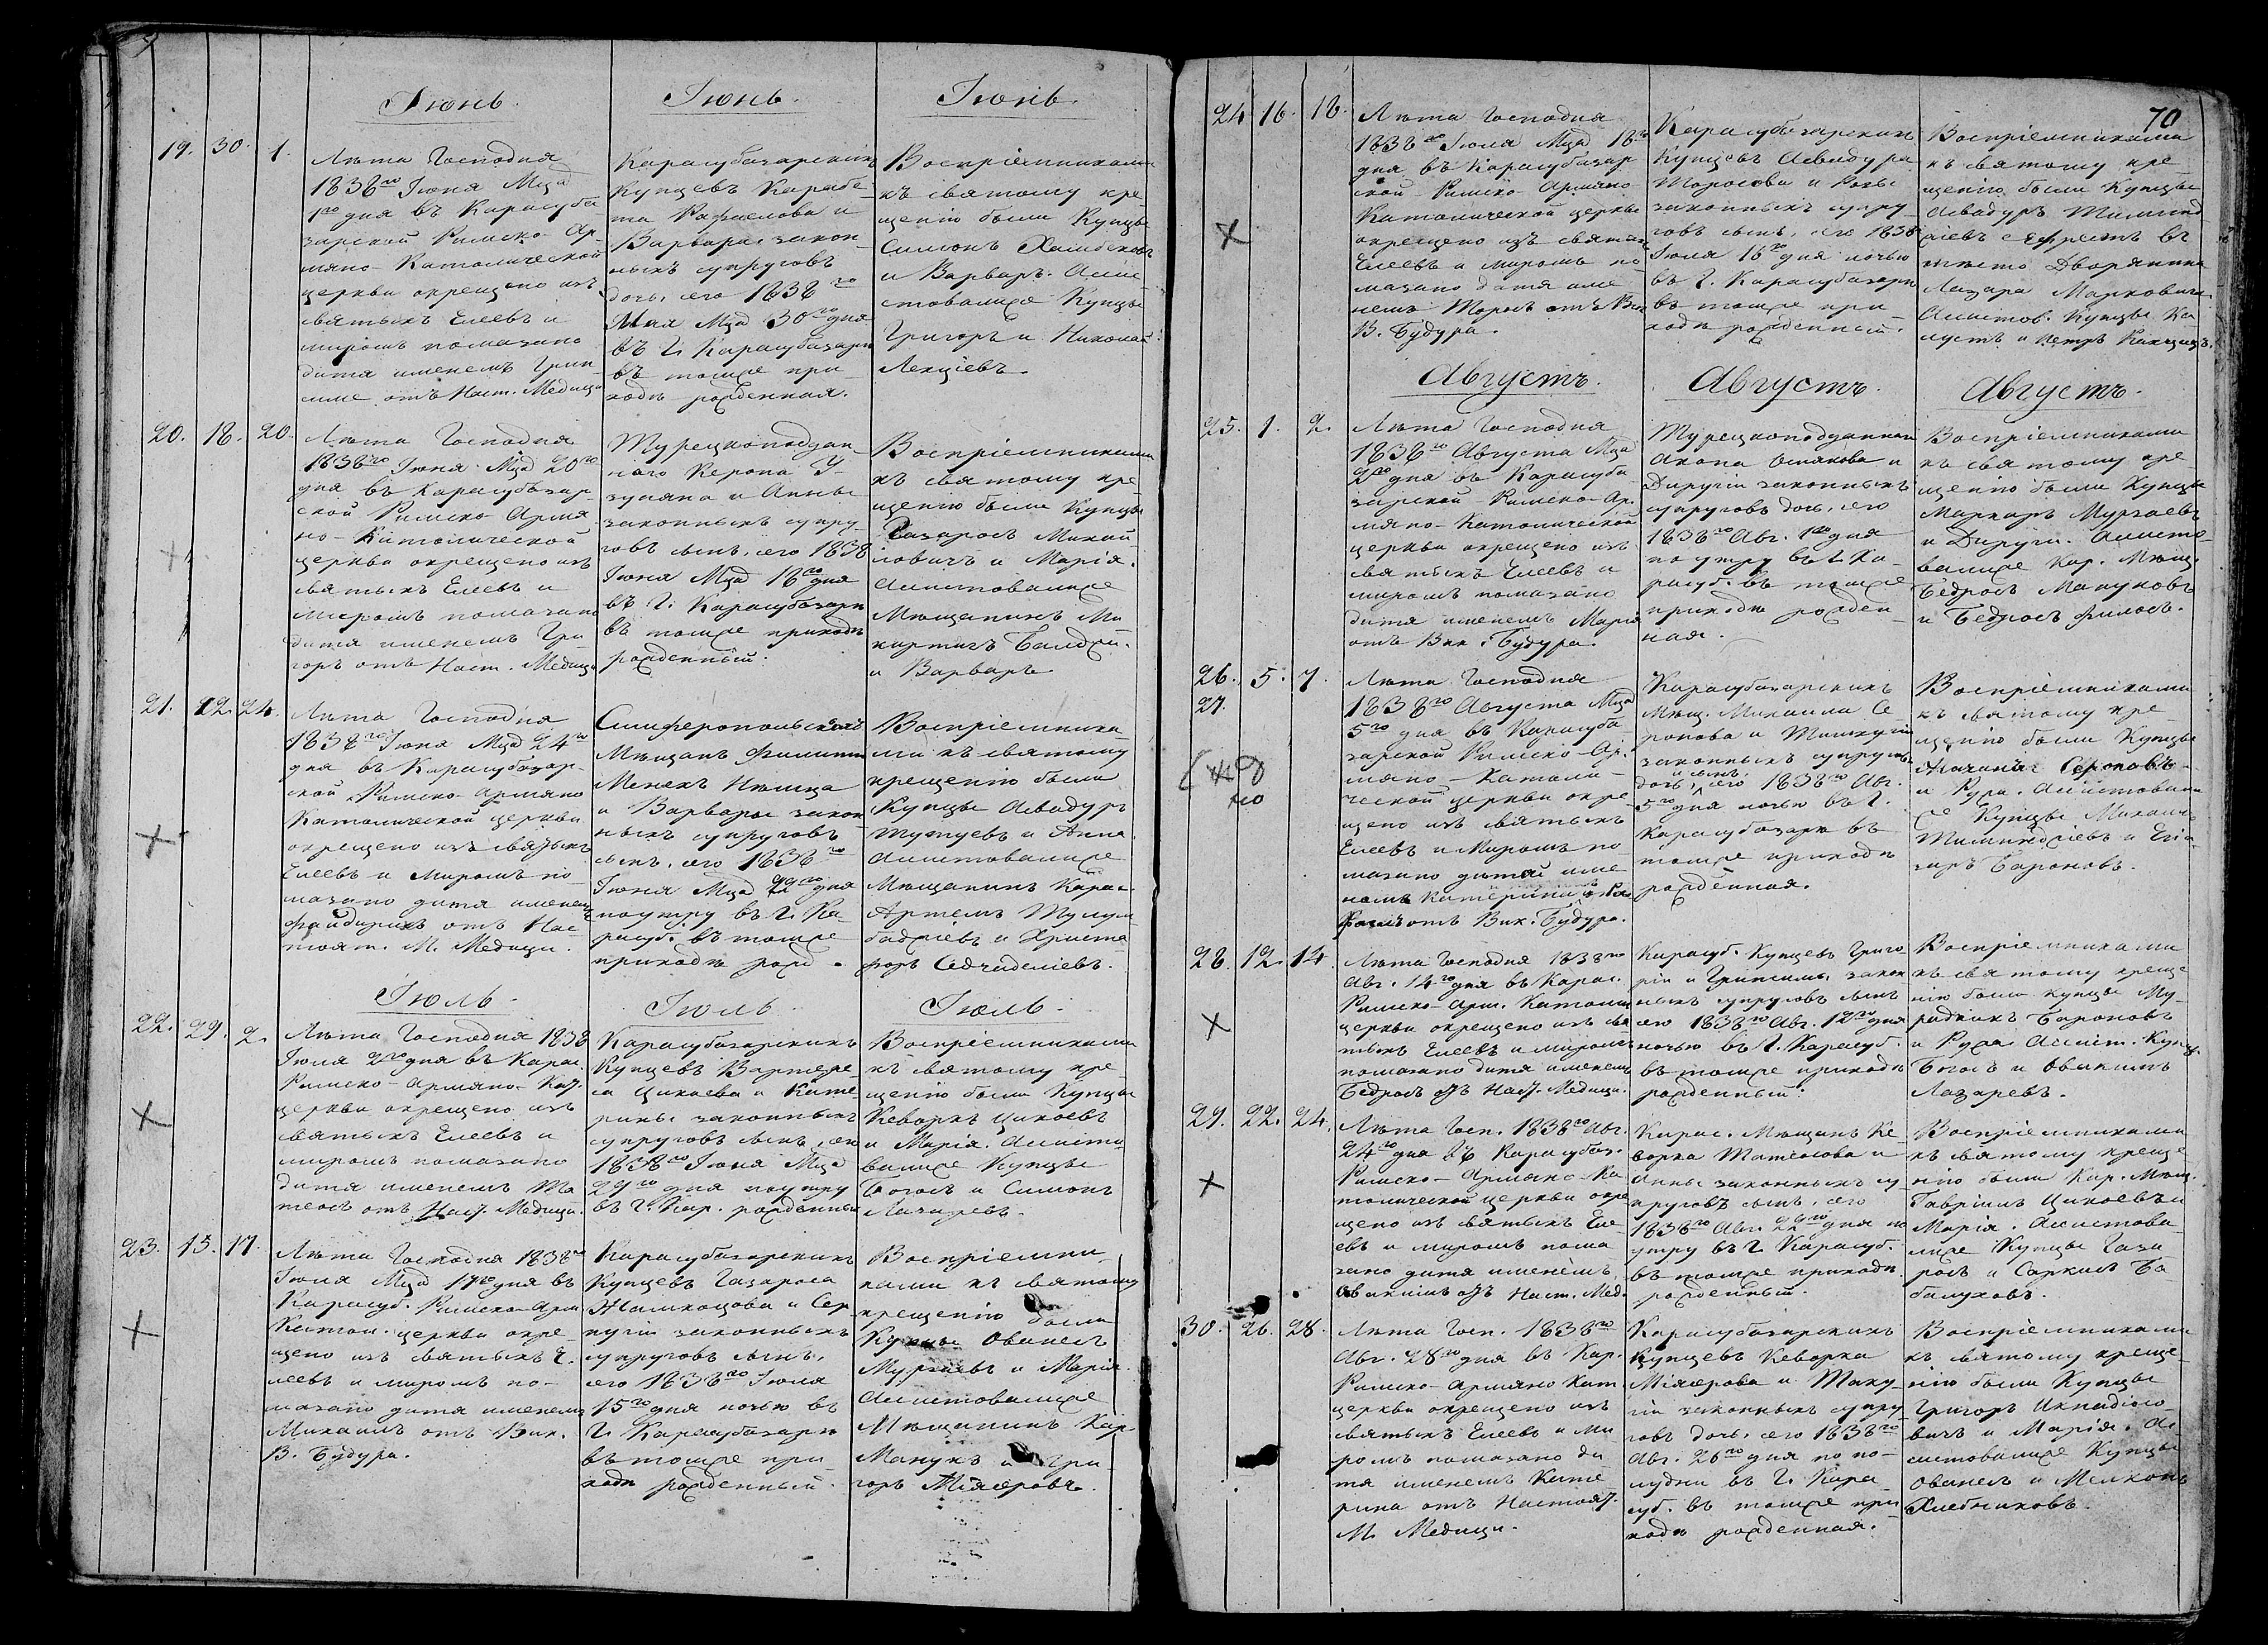 Іюнь.
Іюнь.
Іюнь.
19. 30. 1.
Лѣта Господня
1838го Іюня Мца
1го дня въ Карасуба-
зарской Римско-Ар-
мяно-Католической
церкви окрещено изъ
святыхъ Елеевъ и
миромъ помазано
дитя именемъ Грип-
симе отъ Наст. Медици
Карасубазарскихъ
Купцевъ Карабе-
та Рафаелова и
Варвары закон-
ныхъ супруговъ
дочь, сего 1838го
Мая Мца 30го дня
въ г. Карасубазарѣ
въ томже при-
ходѣ рожденная.
Воспріемниками
къ святому кре-
щенію были Купцы
Симонъ
и Варваръ. Асси-
стовавшіе Купцы
Григоръ и Николай
Лекціевъ
20. 18. 20.
Лѣта Господня
1838го Іюня Мца 20го
дня въ Карасубазар-
ской Римско-Армя-
но-Католической
церкви окрещено изъ
святыхъ Елеевъ и
миромъ помазано
дитя именемъ Гри-
горъ отъ Наст. Медици
Турецкоподдан-
наго Керопа У-
зуняна и Анны
законныхъ супру-
говъ сынъ, сего 1838
Іюня Мца 18го дня
въ г. Карасубазарѣ
въ томже приходѣ
рожденный.
Воспріемниками
къ святому кре-
щенію были Купцы
Газаросъ Михай-
ловичъ и Марія.
Ассистовавшіе
Мѣщанинъ Ми-
картичъ
и Варваръ
21. 22. 24.
Лѣта Господня
1838го Іюня Мца 24го
дня въ Карасубазар-
ской Римско-Армяно
Католической церкви
окрещено изъ святыхъ
Елеевъ и миромъ по-
мазано дитя именемъ
отъ Нас-
тоят. М. Медици.
Симферопольскихъ
Мѣщанъ Филиппа
Менекъ Нѣмца
и Варвары закон-
ныхъ супруговъ
сынъ, сего 1838го
Іюня Мца 22го дня
поутру въ г. Ка-
расуб. въ томже
приходѣ рожд.
Воспріемника-
ми къ святому
крещенію были
Купцы Асвадуръ
Тутуевъ и Анна.
Ассистовавшіе
Мѣщанинъ Карас.
Артемъ
и Христо-
форъ
Іюль.
Іюль
Іюль.
22. 29. 2.
Лѣта Господня 1838
Іюля 2го дня въ Карас.
Римско-Армяно-Кат.
церкви окрещено изъ
святыхъ Елеевъ и
миромъ помазано
дитя именемъ Ма-
теосъ отъ Наст. Медици.
Карасубазарскихъ
Купцевъ Вартере-
са Цикоева и Кате-
рины законныхъ
супруговъ сынъ, сего
1838го Іюня Мца
29го дня поутру
въ г. Кар. рожденный
Воспріемниками
къ святому кре-
щенію были Купцы
Кеворкъ Цикоевъ
и Марія. Ассисто-
вавшіе Купцы
Богосъ и Симонъ
Лазаревъ.
23. 15. 17.
Лѣта Господня 1838го
Іюля Мца 17го дня въ
Карасуб. Римско-Арм
Катол. церкви окре-
щено изъ святыхъ Е-
леевъ и миромъ по-
мазано дитя именемъ
Михаилъ отъ Вик.
В. Будура.
Карасубазарскихъ
Купцевъ Газароса
и Сер-
пугіи законныхъ
супруговъ сынъ,
сего 1838го Іюля
15го дня ночью въ
г. Карасубазарѣ
въ томже при-
ходѣ рожденный.
Воспріемни-
ками къ святому
крещенію были
Купцы Ованесъ
Мурзаевъ и Марія.
Ассистовавшіе
Мѣщанинъ Кар.
Манукъ и Гри-
горъ Мѣлеровъ.
70
24 16. 18.
Лѣта Господня
1838го Іюля Мца 18го
дня въ Карасубазар
ской Римско-Армяно
Католической церкви
окрещено изъ святыхъ
Елеевъ и миромъ по-
мазано дитя име-
немъ Торосъ отъ Вик
В. Будура.
Карасубазарскихъ
Купцевъ Асвадура
Торосова и Розы
законныхъ супру-
говъ сынъ, сего 1838
Іюля 16го дня ночью
въ г. Карасубазарѣ
въ томже при-
ходѣ рожденный.
Воспріемниками
къ святому кре-
щенію были Купцы
Асвадуръ
въ
мѣсто Дворянина
Лазара Марковича.
Ассистов. Купцы Ка-
лустъ и Петръ
Августъ.
Августъ.
Августъ.
25. 1. 2.
Лѣта Господня
1838го Августа Мца
2го дня въ Карасуба-
зарской Римско-Ар-
мяно-Католической
церкви окрещено изъ
святыхъ Елеевъ и
миромъ помазано
дитя именемъ Марія
отъ Вик. Будура.
Турецкоподданнаго
Акопа и
Дируги законныхъ
супруговъ дочь, сего
1838го Авг. 1го дня
поутру въ г. Ка-
расуб. въ томже
приходѣ рожден-
ная.
Воспріемниками
къ святому кре-
щенію были Купцы
Маркаръ Мурзаевъ
и Дируги. Ассисто-
вавшіе Кар. Мѣщ.
Бедросъ Мануковъ
и Бедросъ
26. 5. 7.
27.
Лѣта Господня
1838го Августа Мца
5го дня въ Карасуба-
зарской Римско-Ар-
мяно-Катали-
ческой церкви окре-
щено изъ святыхъ
Елеевъ и Миромъ по-
мазано дитяй име-
немъ Катерини и
отъ Вик. Будура.
Карасубазарскихъ
Мѣщ. Михаила Се-
ропова и
законныхъ супруговъ
дочь и сынъ, сего 1838го Авг.
5го дня ночью въ г.
Карасубазарѣ въ
томже приходѣ
рожденная.
Воспріемниками
къ святому кре-
щенію были Купцы
Сероповъ
и Руза. Ассистовавші-
е Купцы Михаилъ
и Егіа-
заръ Бароновъ.
28. 12. 14.
Лѣта Господня 1838го
Авг. 14го дня въ Карас.
Римско-Арм. Католич
церкви окрещено изъ свя
тыхъ Елеевъ и миромъ
помазано дитя именемъ
Бедросъ отъ Наст. Медици.
Карасуб. Купцевъ Григо
рія и Грипсиме закон
ныхъ супруговъ сынъ
сего 1838го Авг. 12го дня
ночью въ г. Карасуб.
въ томже приходѣ
рожденный.
Воспріемниками
къ святому креще
нію были купцы Му-
радханъ Бароновъ
и Руза. Ассист. Купцы
Богосъ и Овакимъ
Лазаревъ.
29. 22. 24.
Лѣта Госп. 1838го Авг.
24го дня въ Карасубаз.
Римско-Армяно-Ка
толической церкви окре
щено изъ святыхъ Еле-
евъ и миромъ пома
зано дитя именемъ
Овакимъ отъ Наст. Мед.
Карас. Мѣщанъ Ке
ворка Матеосова и
Анны законныхъ су
пруговъ сынъ, сего
1838го Авг. 22го дня по
утру въ г. Карасуб.
въ томже приходѣ
рожденный.
Воспріемниками
къ святому креще
нію были Кар. Мѣщ.
Гавріилъ Цикоевъ и
Марія. Ассистова-
вшіе Купцы Газа-
росъ и Саркисъ Ба-
балуховъ.
30. 26. 28.
Лѣта Госп. 1838го
Авг. 28го дня въ Кар.
Римско-Армяно Кат
церкви окрещено изъ
святыхъ Елеевъ и ми-
ромъ помазано ди
тя именемъ Кате
рина отъ Настоят.
М. Медици.
Карасубазарскихъ
Купцевъ Кеворка
Мѣлерова и Таку-
гіи законныхъ супру
говъ дочь, сего 1838го
Авг. 26го дня по по-
лудни въ г. Кара
суб. въ томже при
ходѣ рожденная.
Воспріемниками
къ святому креще-
нію были Купцы
Григоръ
вичъ и Марія. Ас-
систовавшіе Купцы
Ованесъ и Мелконъ
Хлебниковъ.